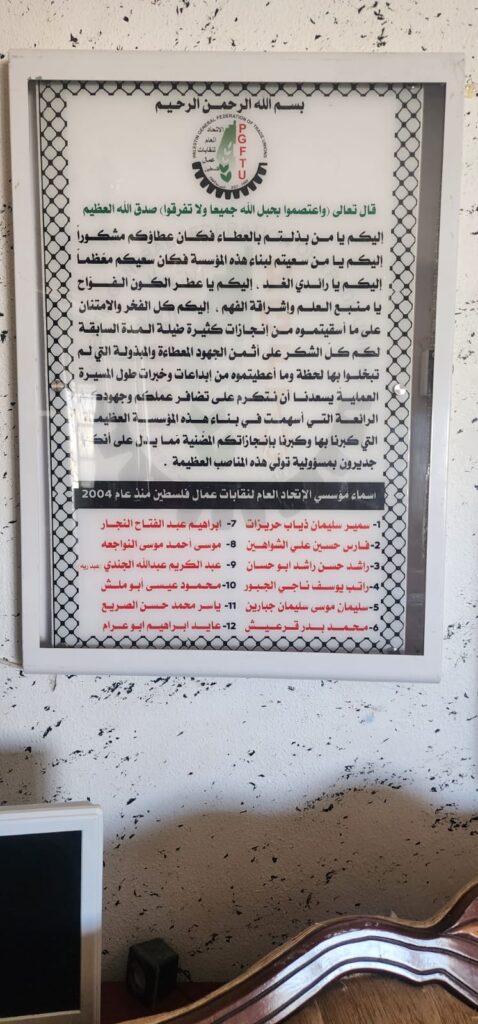 بسم الله الرحمن الرحيم
PALESTINE GENERAL FEDERATION OF TRADE UNIONS
PGFTU
الاتحاد
العام
لنقابات
عمال
فلسطين
قال تعالى (واعتصموا بحبل الله جميعا ولا تفرقوا) صدق الله العظيم
إليكم يا من بذلتم بالعطاء فكان عطاؤكم مشكوراً
إليكم يا من سعيتم لبناء هذه المؤسسة فكان سعيكم معظماً
إليكم يا رائدي الغد . إليكم يا عطر الكون الفواح
يا منبع العلم وإشراقة الفهم . إليكم كل الفخر والامتنان
على ما أسقيتموه من انجازات كثيرة طيلة المدة السابقة
لكم كل الشكر على أثمن الجهود المعطاءة والمبذولة التي لم
تبخلوا بها لحظة وما أعطيتموه من إبداعات وخبرات طول المسيرة
العملية يسعدنا أن نتكرم على تضافر عملكم وجهودكم
الرائعة التي أسهمت في بناء هذه المؤسسة العظيمة
التي كبرنا بها وكبرنا بإنجازاتكم المضنية مما يدل على أنكم
جديرون بمسؤولية تولي هذه المناصب العظيمة .
اسماء مؤسسي الإتحاد العام لنقابات عمال فلسطين منذ عام 2004
1- سمير سليمان ذياب حريزات 7- ابراهيم عبد الفتاح النجار
2- فارس حسين علي الشواهين 8- موسى أحمد موسى النواجعه
3- راشد حسن راشد ابو حسان 9- عبد الكريم عبدالله الجندي
4- راتب يوسف ناجي الجبور 10- محمود عيسى أبو ملش
5- سليمان موسى سليمان جبارين 11- ياسر محمد حسن الصريع
6- محمد بدر قرعيش 12- عايد ابراهيم ابو عرام